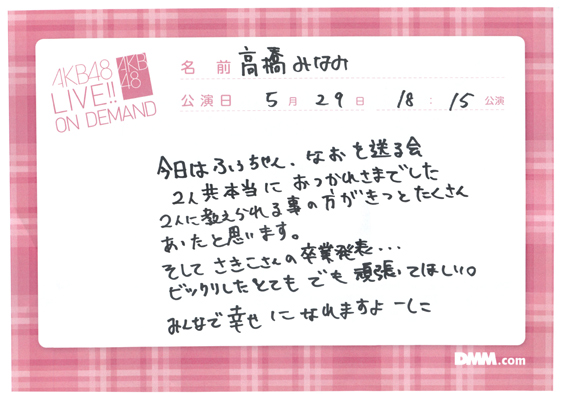 AKB48
LIVE!!
ON DEMAND
AKB
48
名前 高橋みなみ
公演日 5月29日 18:15公演
今日はふぅちゃん、なおを送る会
2人共本当におつかれさまでした
2人に教えられる事の方がきっとたくさん
あったと思います。
そしてさきこさんの卒業発表...
ビックリしたとても でも 頑張ってほしい。
みんなで幸せになれますよーに
DMM.com